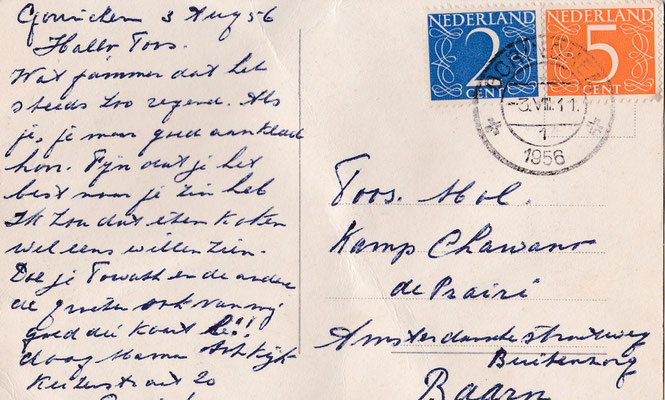 Gorinchem 3 Aug 56
Hallo Toos.
Wat jammer dat het
steeds zoo regend. Als
je, je maar goed aankleed
hoor. Fijn dat je het
best naar je zin heb
Ik zou dat eten koken
wel eens willen zien.
Doe je Towath en de andere
de groeten ook van mij
goed die kaart
daag Mama
Keizerstraat 20
NEDERLAND
2
CENT
NEDERLAND
5
CENT
-3.VIII.11.
1
1956
Toos. Mol.
Kamp Chawano
de Prairi
Amsterdamschestraatweg
Buitenzorg
Baarn